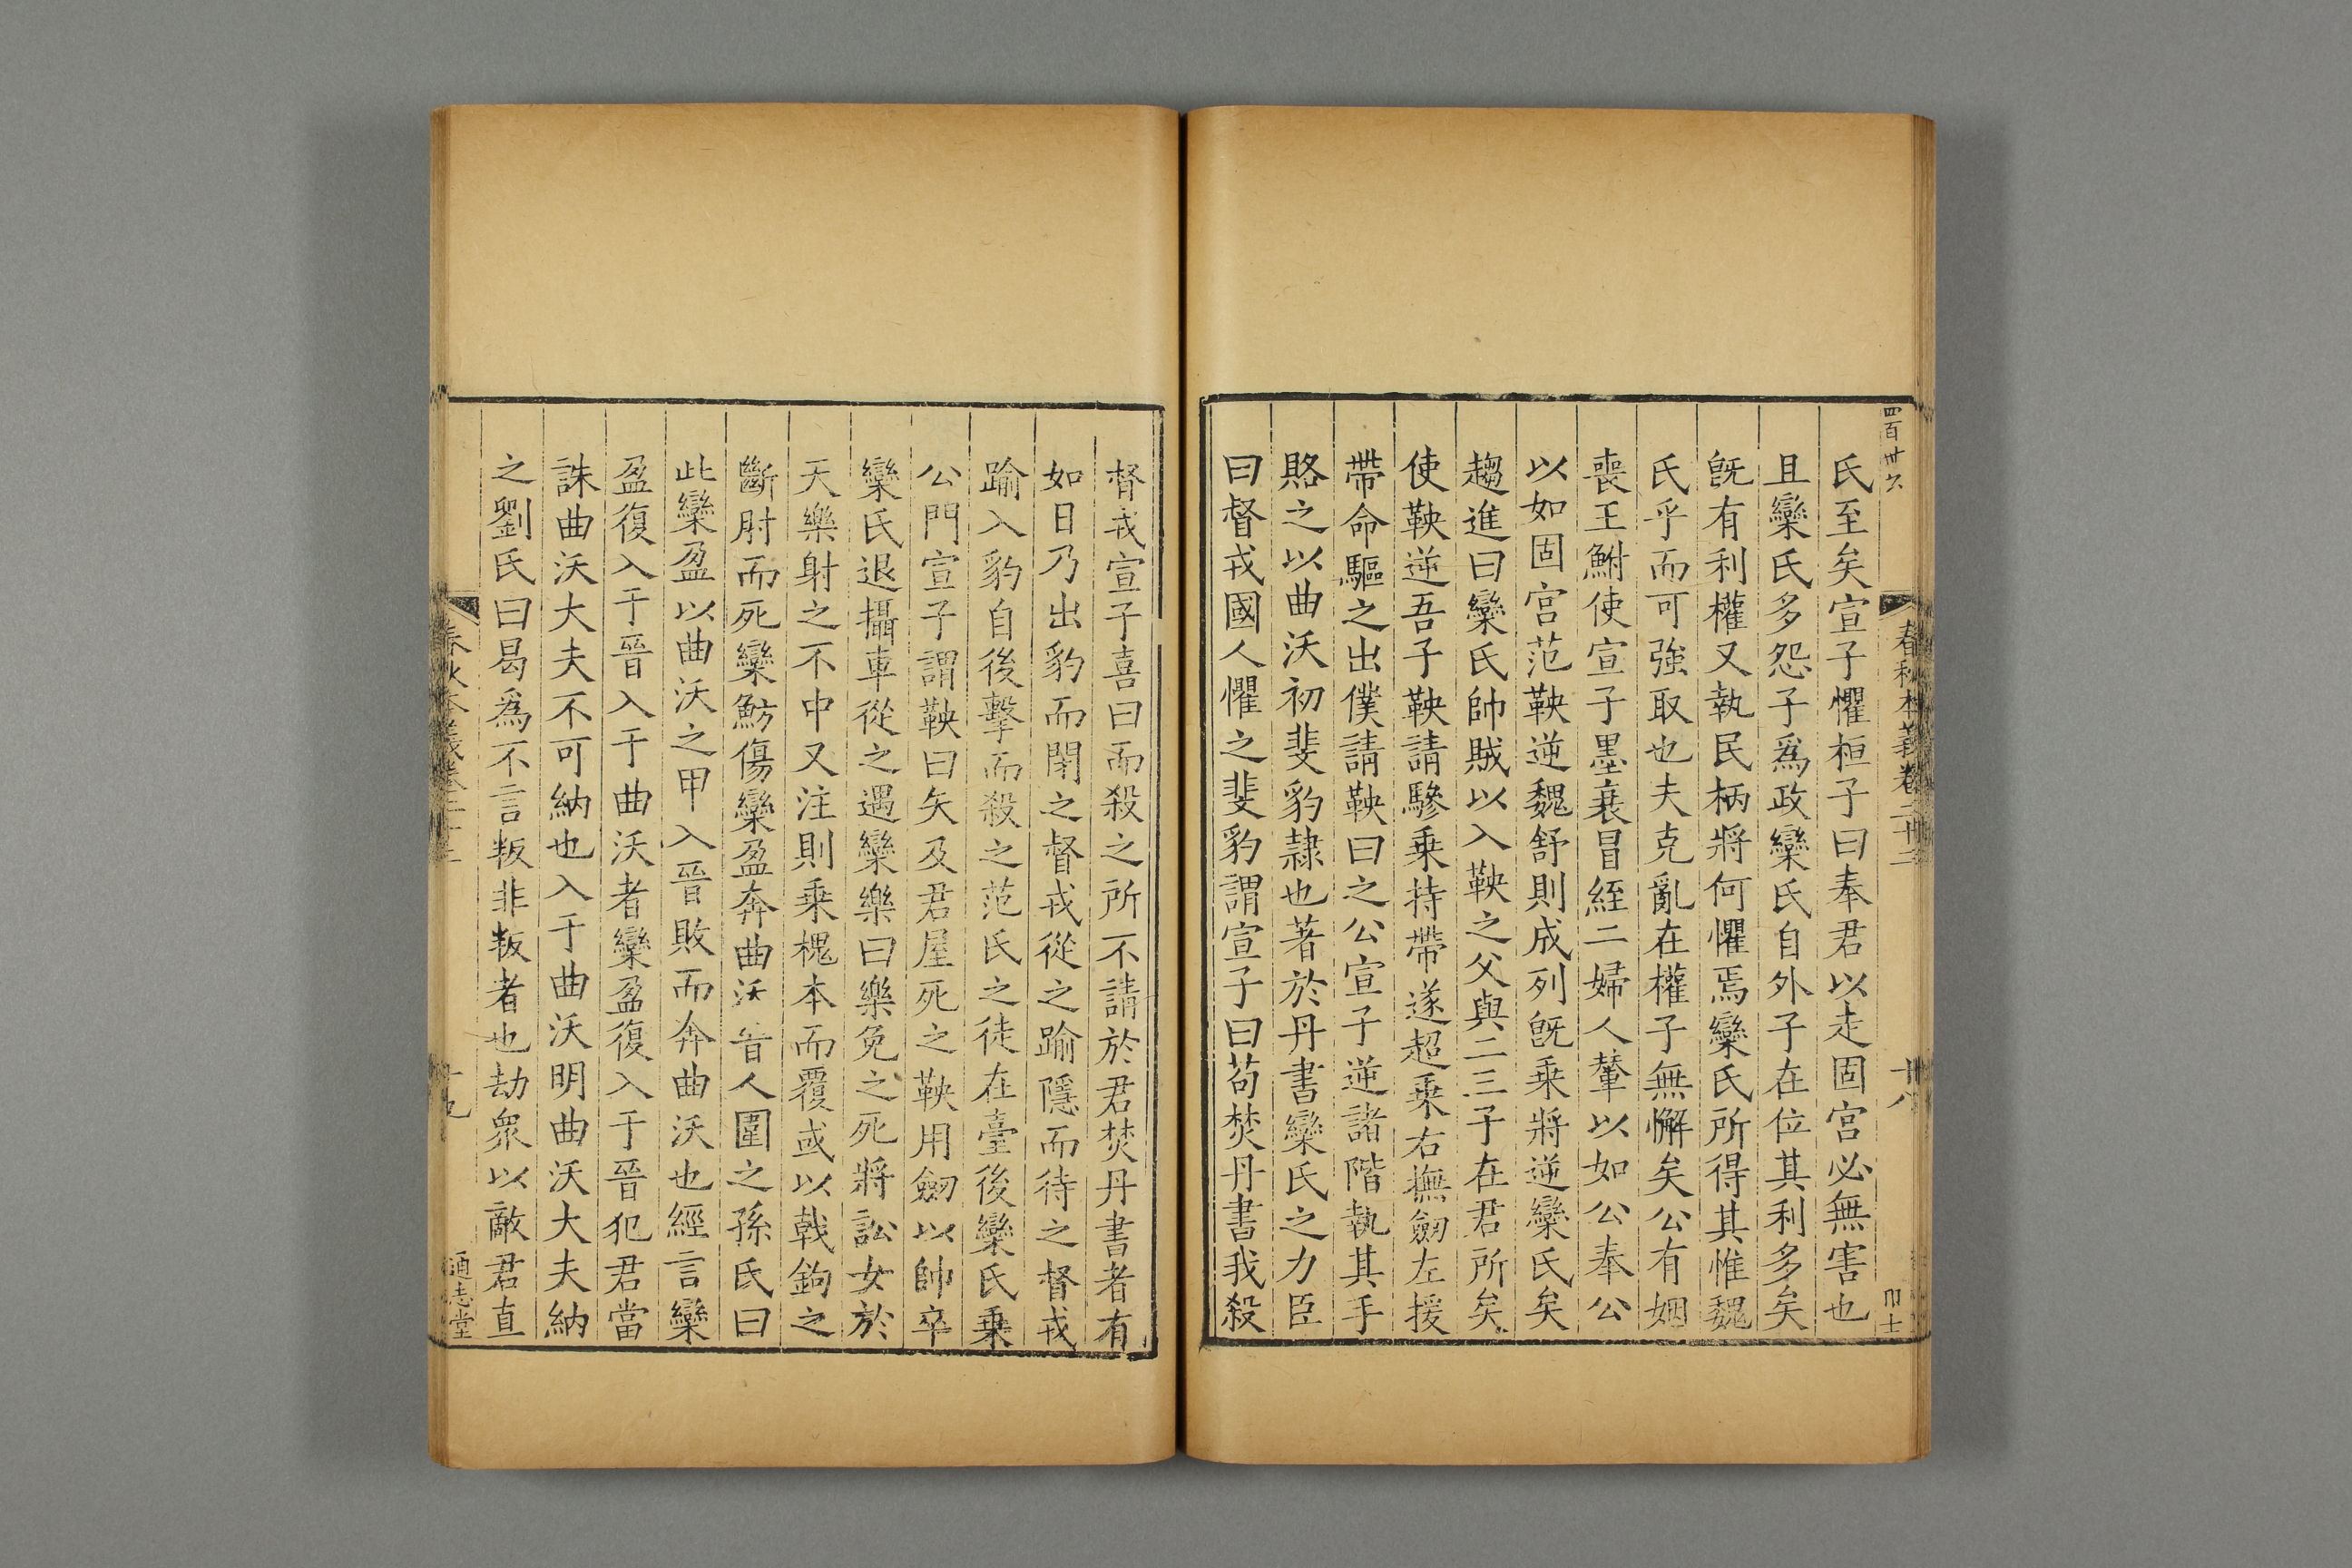 四百卅六
春秋本義卷二十二
十八
氏至矣宣子懼桓子曰奉君以走固宮必無害也
且欒氏多怨子爲政欒氏自外子在位其利多矣
旣有利權又執民柄將何懼焉欒氏所得其惟魏
氏乎而可強取也夫克亂在權子無懈矣公有姻
喪王鮒使宣子墨衰冒絰二婦人輦以如公奉公
以如固宮范鞅逆魏舒則成列旣乗將逆欒氏矣
趨進曰欒氏帥賊以入鞅之父與二三子在君所矣
使鞅逆吾子鞅請驂乗持帶遂超乗右撫劒左援
帶命驅之出僕請鞅曰之公宣子逆諸階執其手
賂之以曲沃初斐豹隷也著於丹書欒氏之力臣
曰督戎國人懼之斐豹謂宣子曰苟焚丹書我殺
督戎宣子喜曰而殺之所不請於君焚丹書者有
如日乃出豹而閉之督戎從之踰隱而待之督戎
踰入豹自後擊而殺之范氏之徒在臺後欒氏乗
公門宣子謂鞅曰矢及君屋死之鞅用劒以帥卒
欒氏退攝車從之遇欒樂曰樂免之死將訟女於
天樂射之不中又注則乗槐本而覆或以戟鉤之
斷肘而死欒魴傷欒盈奔曲沃晉人圍之孫氏曰
此欒盈以曲沃之甲入晉敗而奔曲沃也經言欒
盈復入于晉入于曲沃者欒盈復入于晉犯君當
誅曲沃大夫不可納也入于曲沃明曲沃大夫納
之劉氏曰曷爲不言叛非叛者也劫衆以敵君直
十九
通志堂